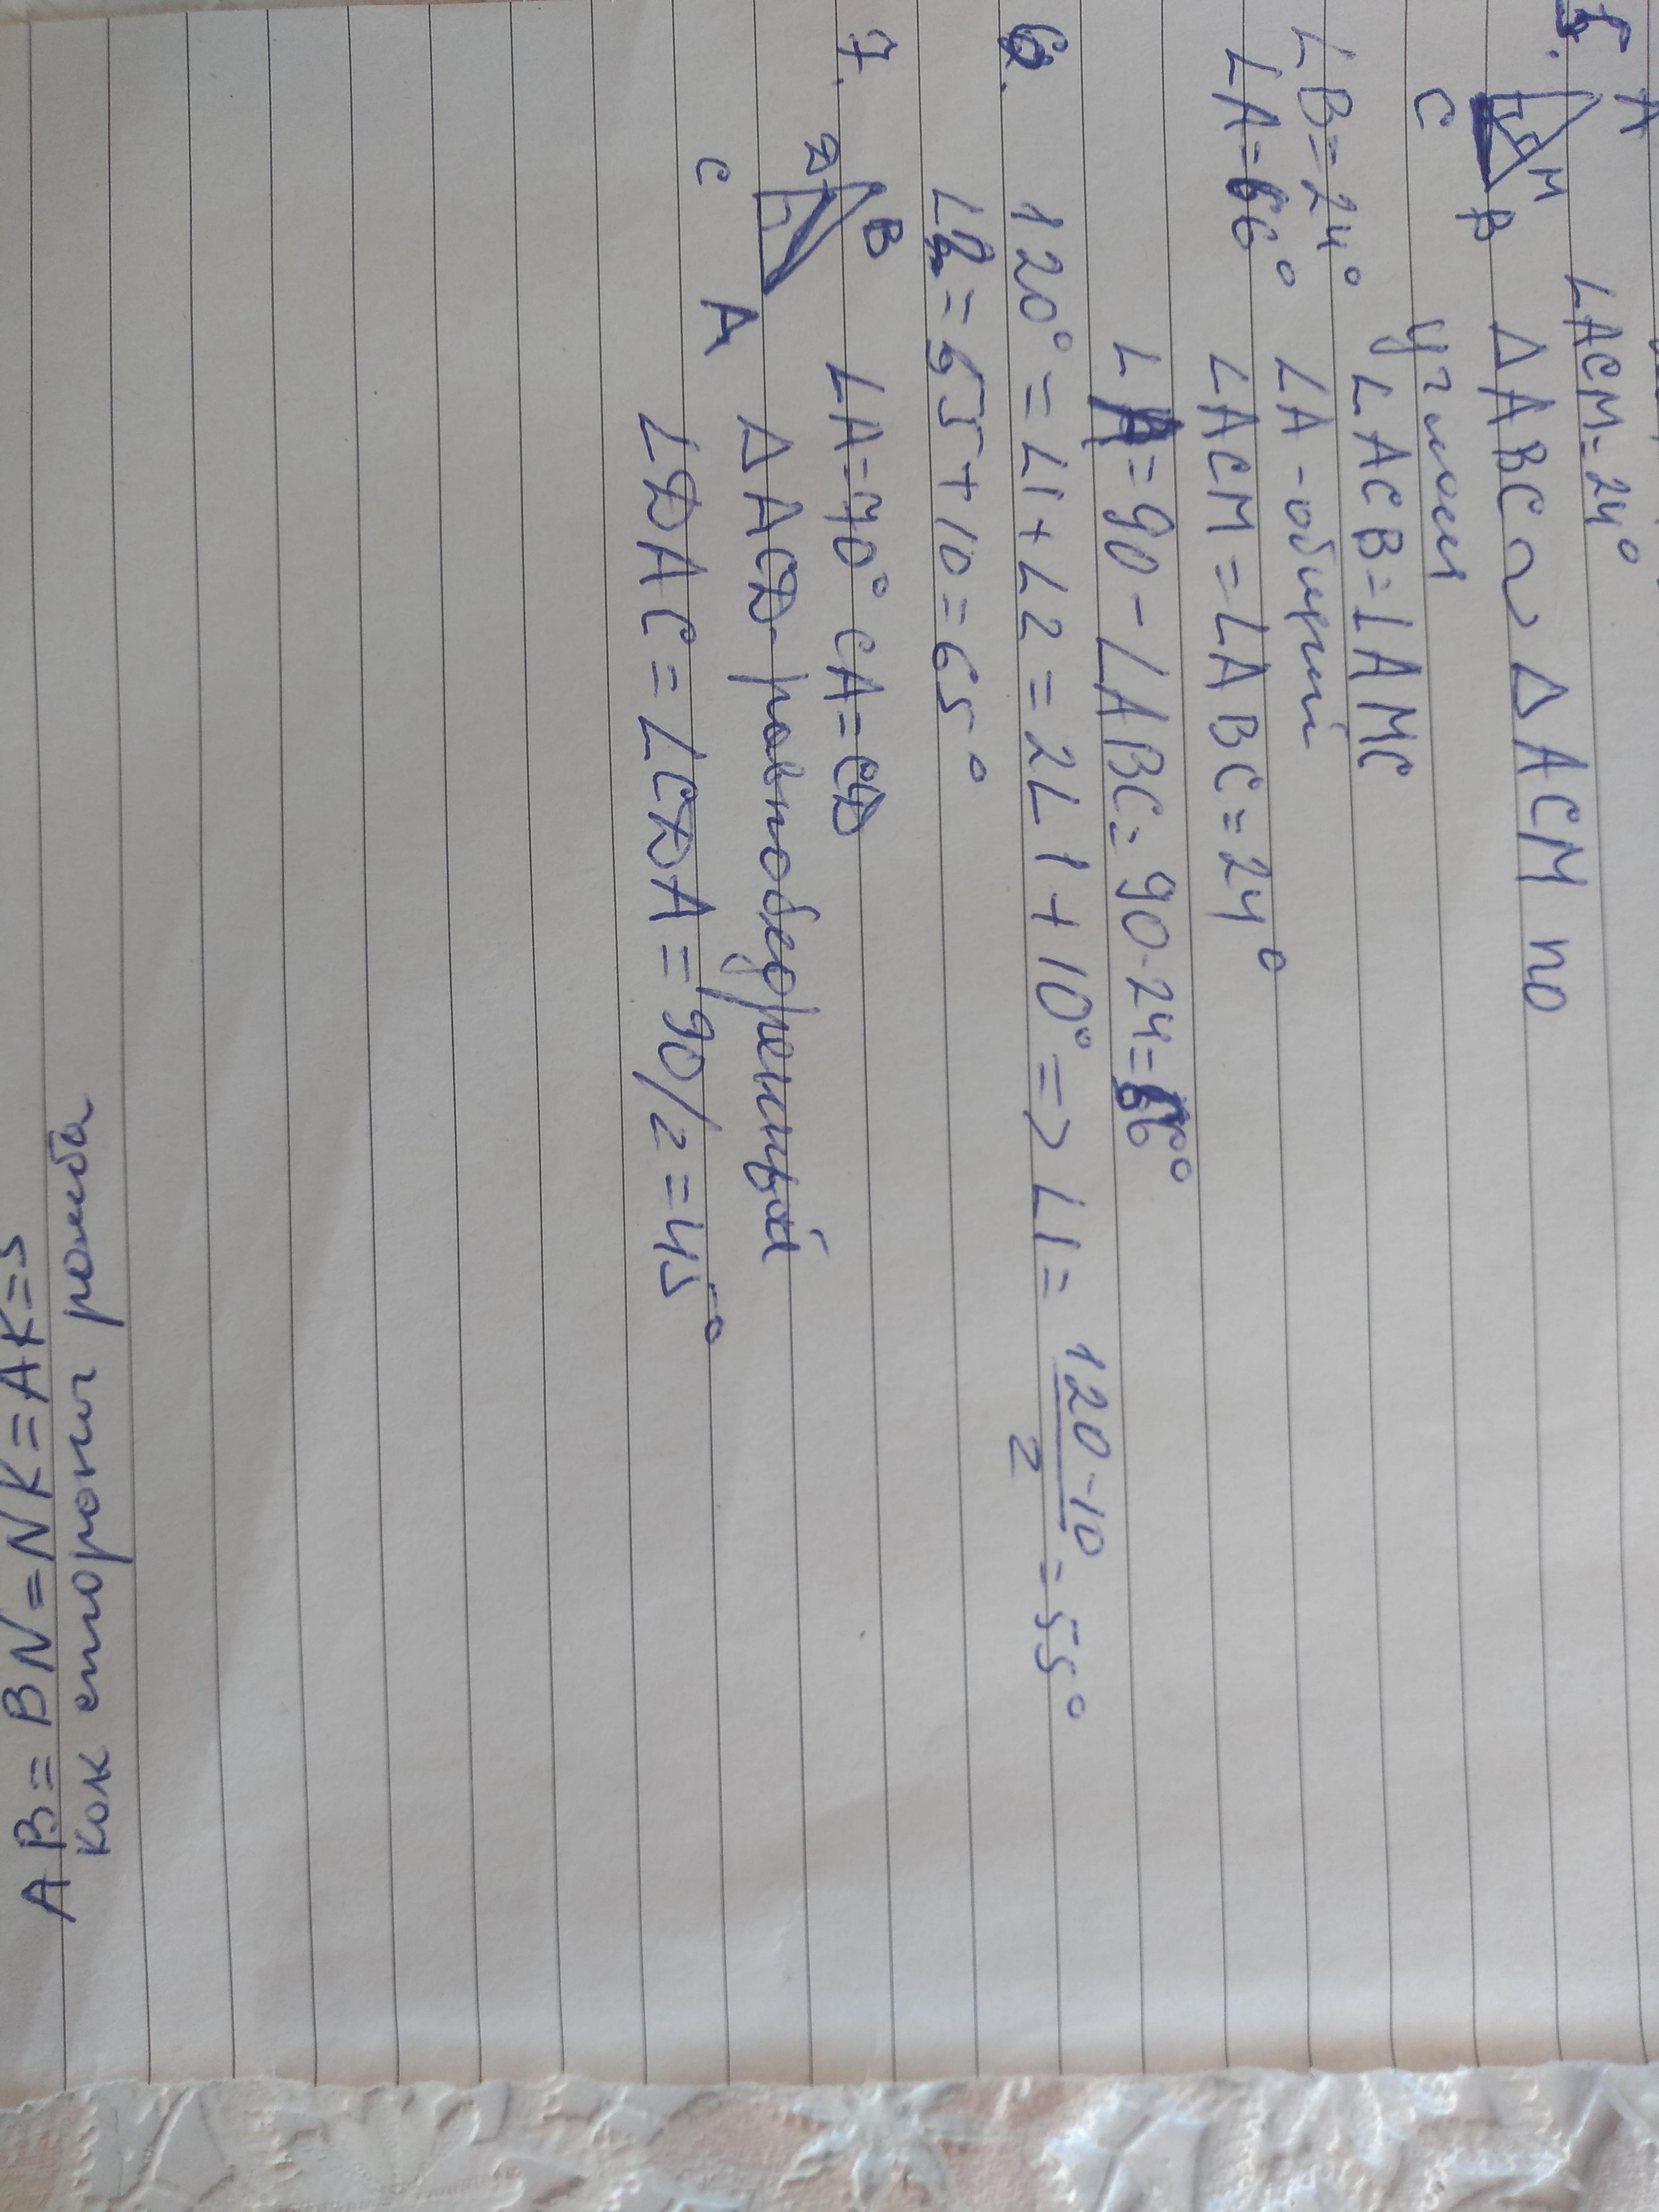 5.
A
M
C
B
∠ACM=24°
△ABC ∾ △ACM по
углам
∠ACB=∠AMC
∠B=24°
∠A-общий
∠A=66°
∠ACM=∠ABC=24°
∠A=90-∠ABC=90-24=66°
6. 120°=∠1+∠2=2∠1+10°=>∠1= 120-10 / 2 =55°
∠2=55+10=65°
7.
B
D
C
A
∠A=70° CA=CD
△ACD-равнобедренный
∠DAC=∠CDA=90/2=45°
AB=BN=NK=AK=5
как стороны ромба